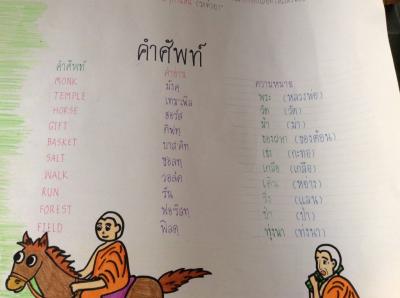 คำศัพท์
คำศัพท์ คำอ่าน ความหมาย
MONK มังคฺ พระ (หลวงพ่อ)
TEMPLE เทมเพิล วัด (วัด)
HORSE ฮอร์ส ม้า (ม้า)
GIFT กิฟทฺ ของฝาก (ของต้อน)
BASKET บาสคิท (กะทอ)
SALT ซอลทฺ เกลือ (เกลือ)
WALK วอล์ค เดิน (หย่าง)
RUN รัน วิ่ง (แล่น)
FOREST ฟอริสทฺ ป่า (ป่า)
FIELD ฟิลดฺ ทุ่งนา (ท่งนา)